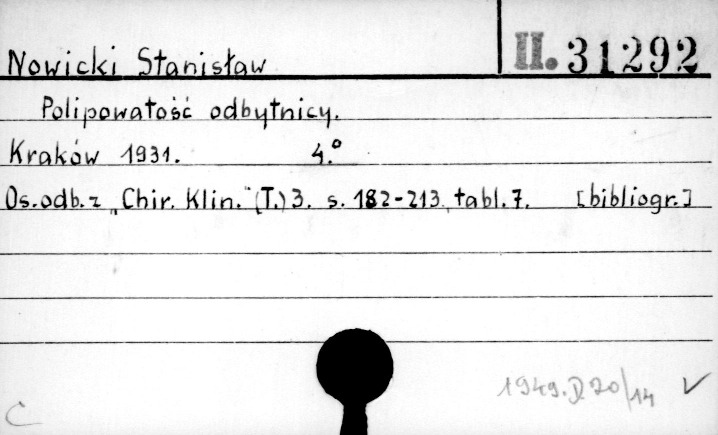 II. 31292
Nowicki Stanisław
Polipowatość odbytnicy.
Kraków 1931. 4.°
Os. odb. z „Chir. Klin." (T.) 3. s. 182-213, tabl. 7. [bibliogr.]
1949. D 20/14 ✓
C